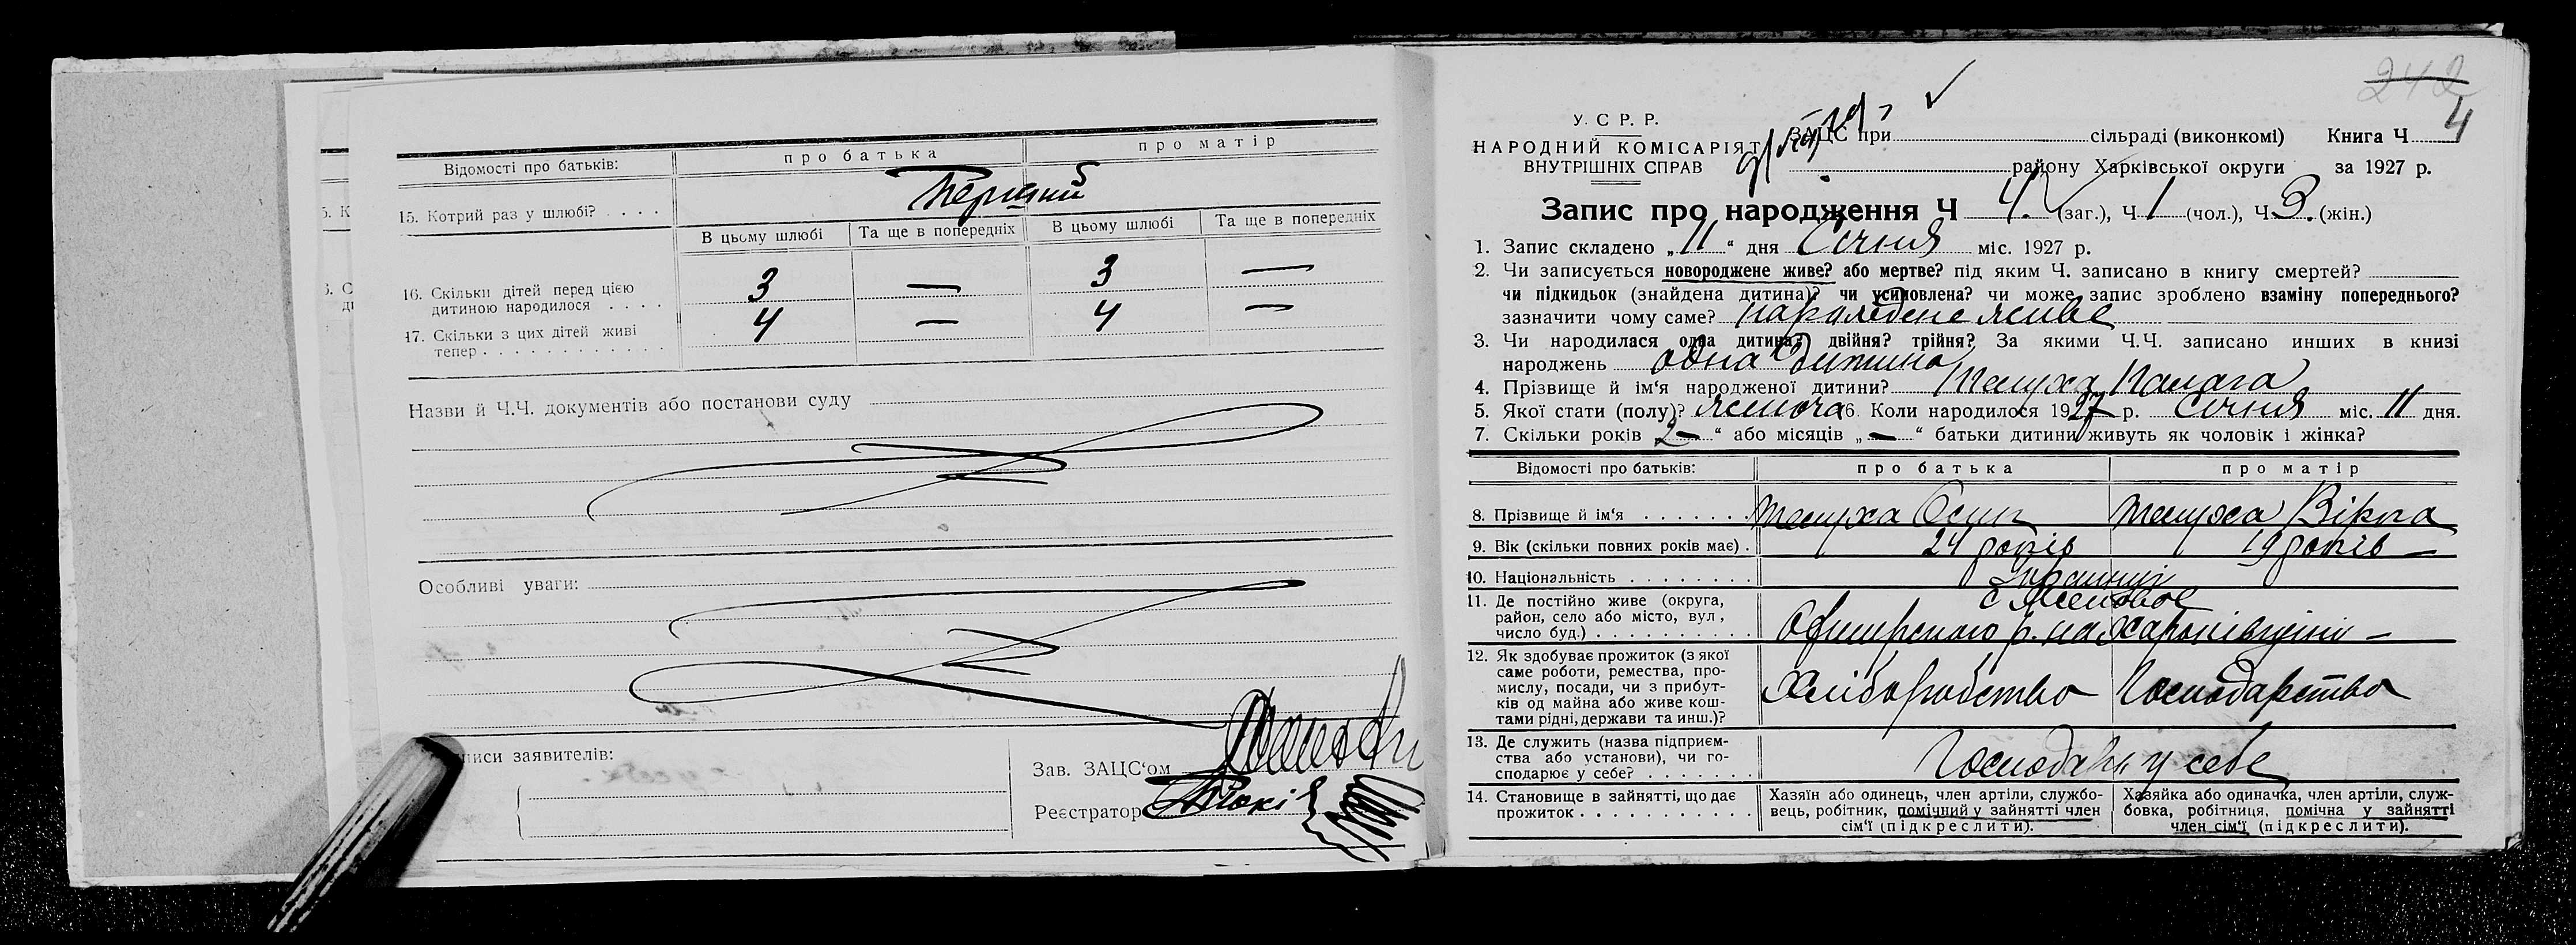 Відомості про батьків:
про батька
про матір
15. Котрий раз у шлюбі? . . . .
Перший
В цьому шлюбі
Та ще в попередніх
В цьому шлюбі
Та ще в попередніх
16. Скільки дітей перед цією
дитиною народилося . . . .
3 — 3 —
17. Скільки з цих дітей живі
тепер . . . . . . . . . . . .
4 — 4 —
Назви й Ч.Ч. документів або постанови суду
Особливі уваги:
писи заявителів:
Зав. ЗАЦС‘ом
Реєстратор
242
4
У. С. Р. Р.
НАРОДНИЙ КОМІСАРІЯТ
ВНУТРІШНІХ СПРАВ
ЗАЦС при сільраді (виконкомі) Книга Ч
району Харківської округи за 1927 р.
Запис про народження Ч 4. (заг.), Ч 1 (чол.), Ч 3. (жін.)
1. Запис складено „ 11 “ дня Січня міс. 1927 р.
2. Чи записується новороджене живе? або мертве? під яким Ч. записано в книгу смертей?
чи підкидьок (знайдена дитина)? чи усиновлена? чи може запис зроблено взаміну попереднього?
зазначити чому саме? народжене живе
3. Чи народилася одна дитина? двійня? трійня? За якими Ч.Ч. записано инших в книзі
народжень одна дитина
4. Прізвище й ім‘я народженої дитини?
5. Якої стати (полу)? жіноча 6. Коли народилося 1927 р. Січня міс. 11 дня.
7. Скільки років „ 2 — “ або місяців „ — “ батьки дитини живуть як чоловік і жінка?
Відомості про батьків:
про батька
про матір
8. Прізвище й ім‘я . . . . . . .
Осип
9. Вік (скільки повних років має) .
24 років
19 років —
10. Національність . . . . . . . .
11. Де постійно живе (округа,
район, село або місто, вул,
число буд.) . . . . . . . . . . .
на Харківщині —
12. Як здобуває прожиток (з якої
саме роботи, ремества, про-
мислу, посади, чи з прибут-
ків од майна або живе кош-
тами рідні, держави та инш.)?
Хліборобство
Господарство
13. Де служить (назва підприєм-
ства або установи), чи го-
сподарює у себе? . . . . . . .
у себе
14. Становище в зайнятті, що дає
прожиток . . . . . . . . . . .
Хазяїн або одинець, член артіли, службо-
вець, робітник, помічний у зайнятті член
сім‘ї (підкреслити).
Хазяйка або одиначка, член артіли, служ-
бовка, робітниця, помічна у зайнятті
член сім‘ї (підкреслити).